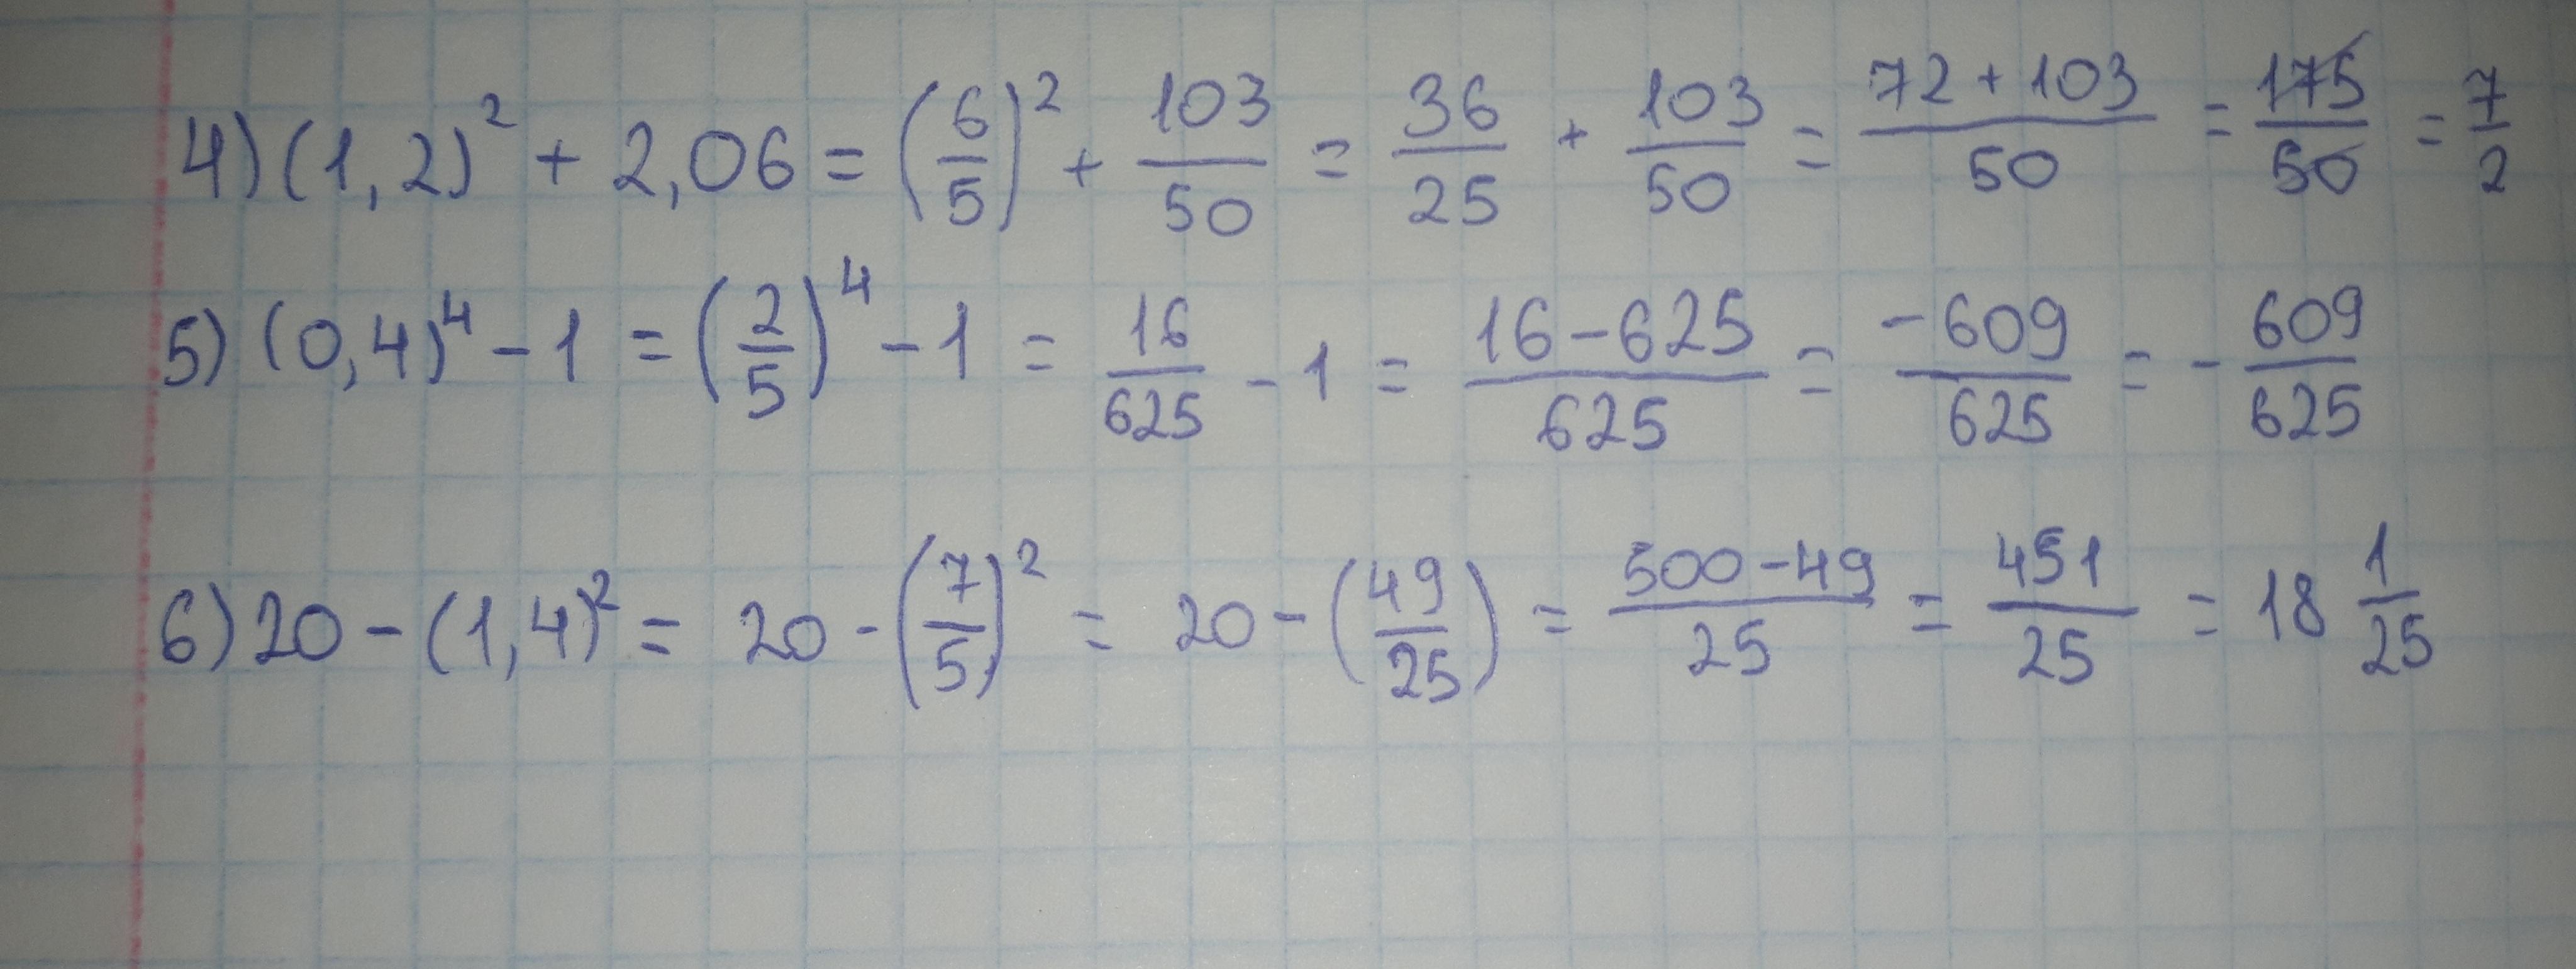 4) (1,2)² + 2,06 = (6/5)² + 103/50 = 36/25 + 103/50 = (72 + 103)/50 = 175/50 = 7/2
5) (0,4)⁴ - 1 = (2/5)⁴ - 1 = 16/625 - 1 = (16 - 625)/625 = -609/625 = - 609/625
6) 20 - (1,4)² = 20 - (7/5)² = 20 - (49/25) = (500 - 49)/25 = 451/25 = 18 1/25